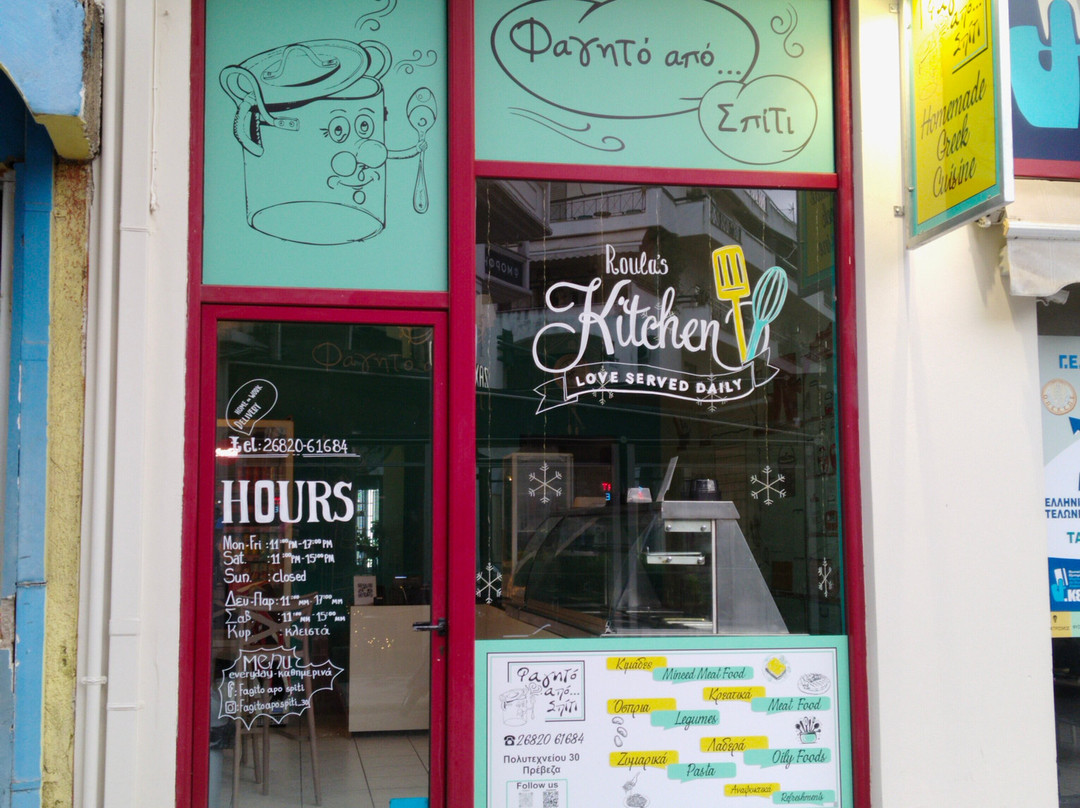 Φαγητό από...
Σπίτι
Φαγητό
από...
Σπίτι
Homemade
Greek
Cuisine
Roula's
Kitchen
LOVE SERVED DAILY
HOME or WORK
DELIVERY
tel: 26820-61684
HOURS
Mon-Fri : 11:00 PM - 17:00 PM
Sat. : 11:00 PM - 15:00 PM
Sun. : closed
Δευ-Παρ: 11:00 ΠΜ - 17:00 ΜΜ
Σαβ : 11:00 ΠΜ - 15:00 ΜΜ
Κυρ : κλειστά
Menu
everyday-καθημερινά
f: Fagito apo spiti
: fagitoapospiti_30
Φαγητό
από...
Σπίτι
26820 61684
Πολυτεχνείου 30
Πρέβεζα
Follow us
Κιμάδες
Minced Meal Food
Κρεατικά
Meal Food
Όσπρια
Legumes
Λαδερά
Oily Foods
Ζυμαρικά
Pasta
Αναψυκτικά
Refreshments
Γ.Ε.
ΕΛΛΗΝΙ
ΤΕΛΩΝΕ
ΤΑ
.ΚΕ